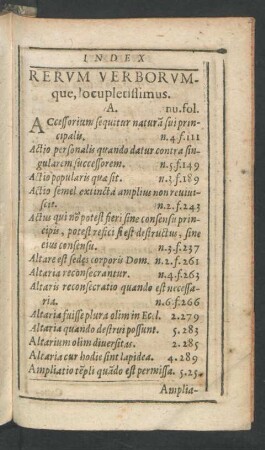 INDEX
RERVM VERBORVM-
que, locupletissimus.
A. nu.fol.
ACcessorium sequitur naturã sui prin-
cipalis. n.4.f.111
Actio personalis quando datur contra sin-
gularem successorem. n.5.f.149
Actio popularis quæ sit. n.3.f.189
Actio semel extincta amplius non reuiui-
scit. n.2.f.243
Actus qui nõ potest fieri sine consensu prin-
cipis, potest refici si est destructus, sine
eius consensu. n.3.f.237
Altare est sedes corporis Dom. n.2.f.261
Altaria reconsecrantur. n.4.f.263
Altaris reconsecratio quando est necessa-
ria. n.6.f.266
Altaria fuisse plura olim in Eccl. 2.279
Altaria quando destrui possunt. 5.283
Altarium olim diuersitas. 2.285
Altaria cur hodie sint lapidea. 4.289
Ampliatio tẽpli quãdo est permissa. 5.25
Amplia-